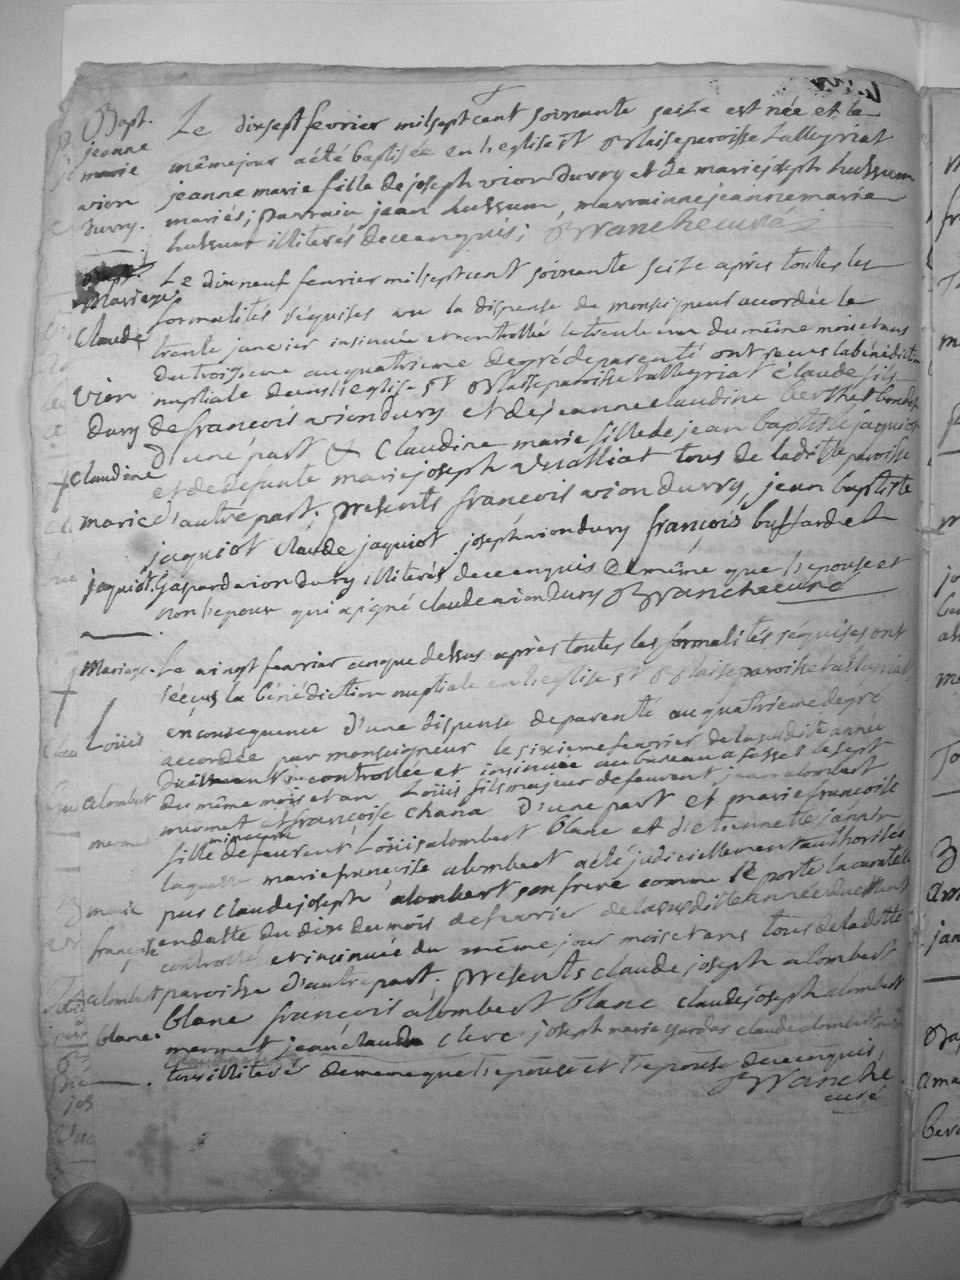 Bapt.
jeanne
marie
vion
Durry.
Le dixsept fevrier milseptcent soixante seize est née et le
même jour a été baptisée en leglise st Blaise paroisse tallegriat
jeanne marie fille de joseph vion durry et de marie joseph hussum
mariés; parrain jean hussum, marrainne jeanne marie
hussum illiterés de ce enquis; Branche curé
Mariage
Claude
vion
dury
claudine
marie
jaquiot.
Le dixneuf fevrier milseptcent soixante seize après toutes les
formalités réquises vu la dispense de monseigneur accordée le
trente janvier insinuée et controllée le trente un du même mois et an
du troisieme au quatrieme degré de parenté ont reçus la bénédiction
nuptiale dans leglise st Blaise paroisse tallegriat claude fils
de francois vion dury et de jeanne claudine berthet bondet
d'une part & Claudine marie fille de jean baptiste jaquiot
et de defunte marie joseph vuailliat tous de la ditte paroisse
d'autre part. presents françois vion durry, jean baptiste
jaquiot claude jaquiot joseph vion dury françois buffard et
Gaspard vion dury illiterés de ce enquis de même que lepouse et
non lepoux qui a signé claude vion dury Branche curé
Mariage.
Loüis
alombert
mermet
marie
françoise
alombert
blanc.
Le vingt fevrier an que dessus après toutes les formalités réquises ont
reçus la bénédiction nuptiale en leglise st Blaise paroisse tallegriat
en consequence d'une dispense de parenté au quatrieme degré
accordée par monseigneur le sixieme fevrier de la susditte année
Duëment controllée et insinuée au bureau le sept
du même mois et an Loüis fils majeur de feu jean alombert
mermet et françoise chana d'une part et marie françoise
fille mineure de feu Loüis alombert blanc et d'étiennette janin
laquelle marie françoise alombert a été judiciellement authorisée
par claude joseph alombert son frere comme se porte la curatelle
en datte du dix du mois de fevrier de la susditte année duëment
controllée et insinuée du même jour mois et ans tous de la ditte
paroisse d'autre part. presents claude joseph alombert
blanc françois alombert blanc claude joseph alombert
mermet jean claude clerc joseph marie gardas claude alombert
tous illiterés de meme que lepoux et lepouse de ce enquis,
Branche
curé